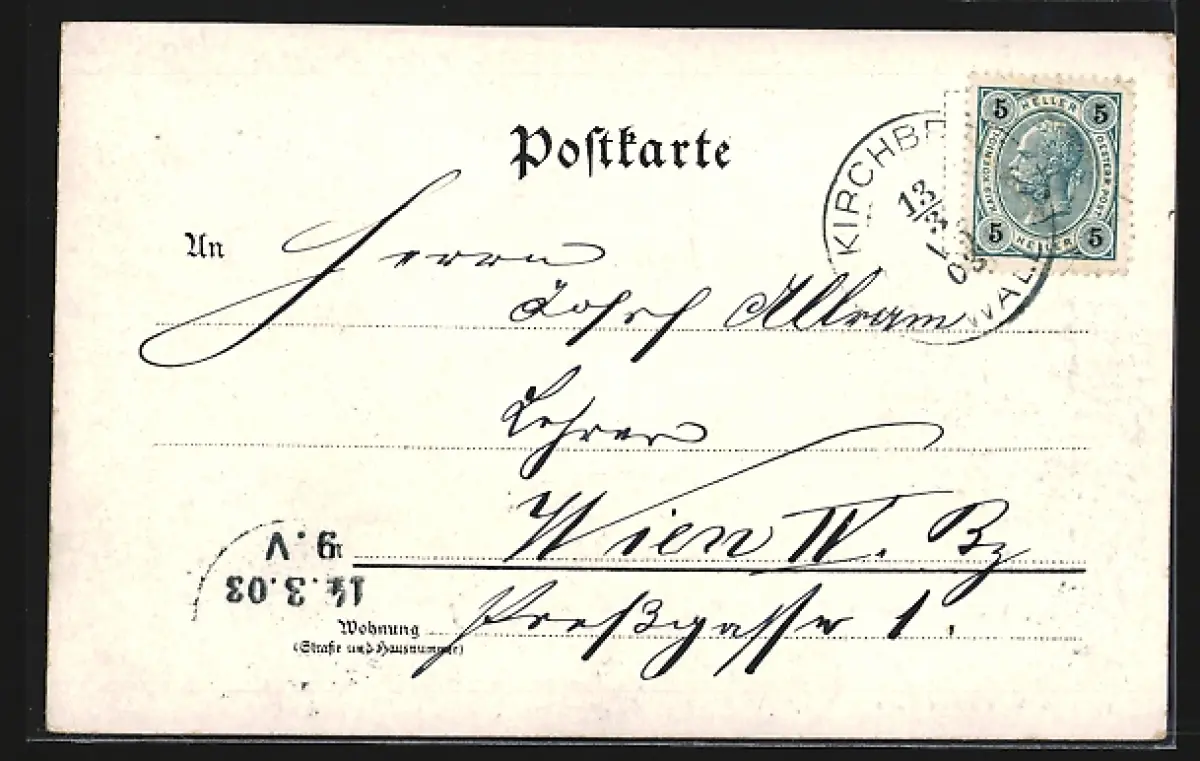 Postkarte
KIRCHB
WALD
13/3
03
5 HELLER 5
KAIS. KOENIGL.
OESTERR. POST.
5 HELLER 5
An Herrn
Josef Allram
Lehrer
in Wien IV. Bz
9.V
14.3.03
Wohnung
(Straße und Hausnummer)
Preßgasse 1.